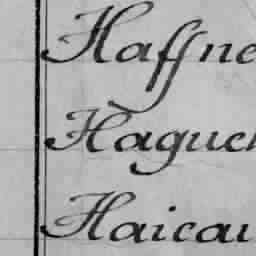 Haffne
Haguen
Haicau